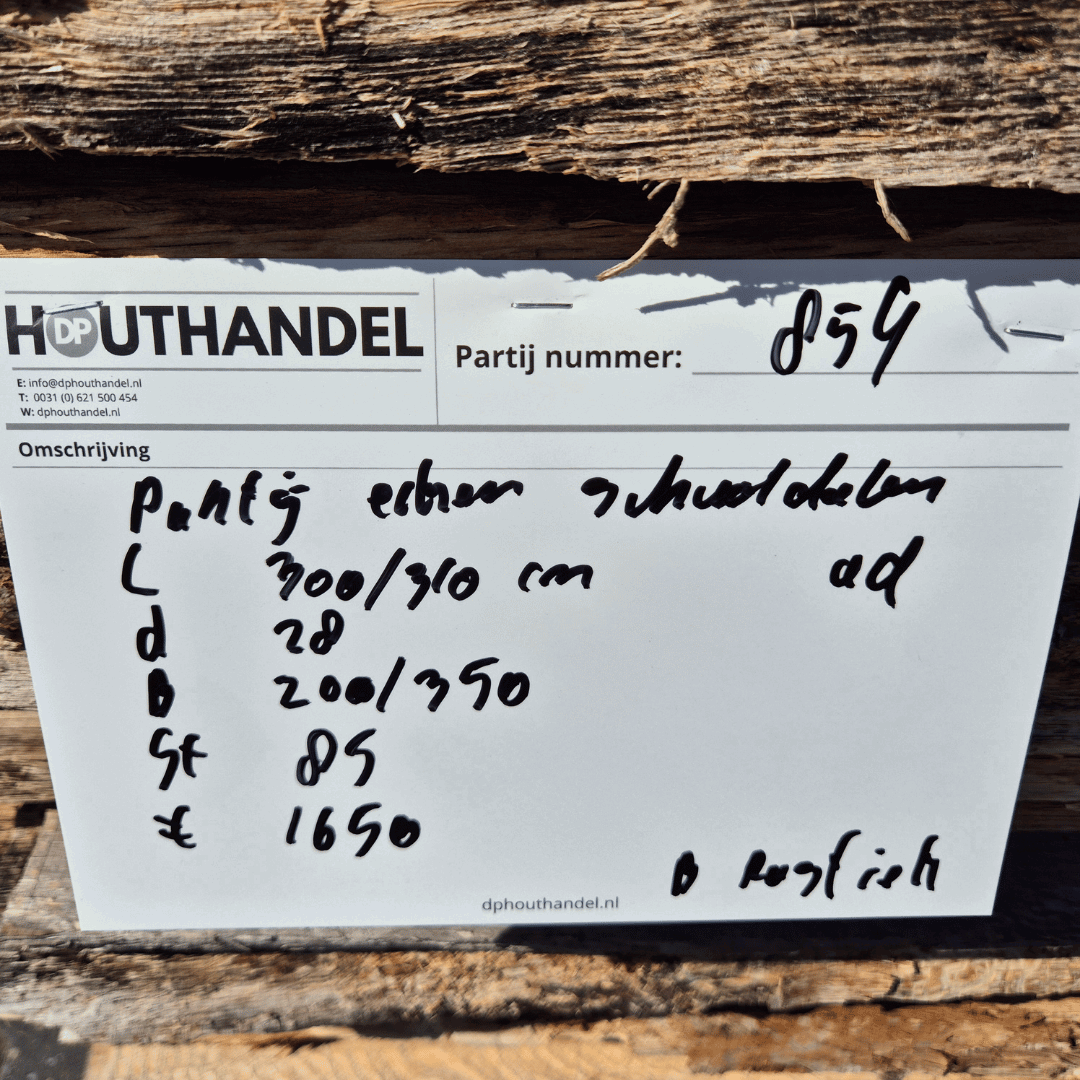 HOUTHANDEL
DP
E: info@dphouthandel.nl
T: 0031 (0) 621 500 454
W: dphouthandel.nl
Partij nummer: 854
Omschrijving
Partij eiken schaaldelen
L 300/310 cm ad
d 28
B 200/350
St 85
€ 1650
B rustiek
dphouthandel.nl